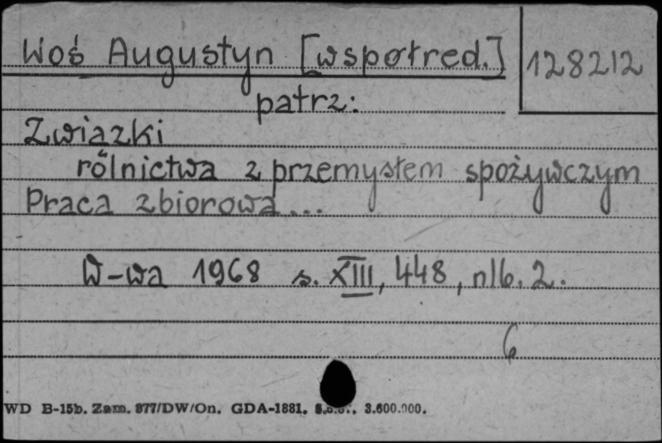 Woś Augustyn [współred.] 128212
patrz:
Związki
rolnictwa z przemysłem spożywczym
Praca zbiorowa...
W-wa 1968 s. XIII, 448, nlb. 2.
6
WD B-15b. Zam. 877/DW/On. GDA-1881, 3.600.000.